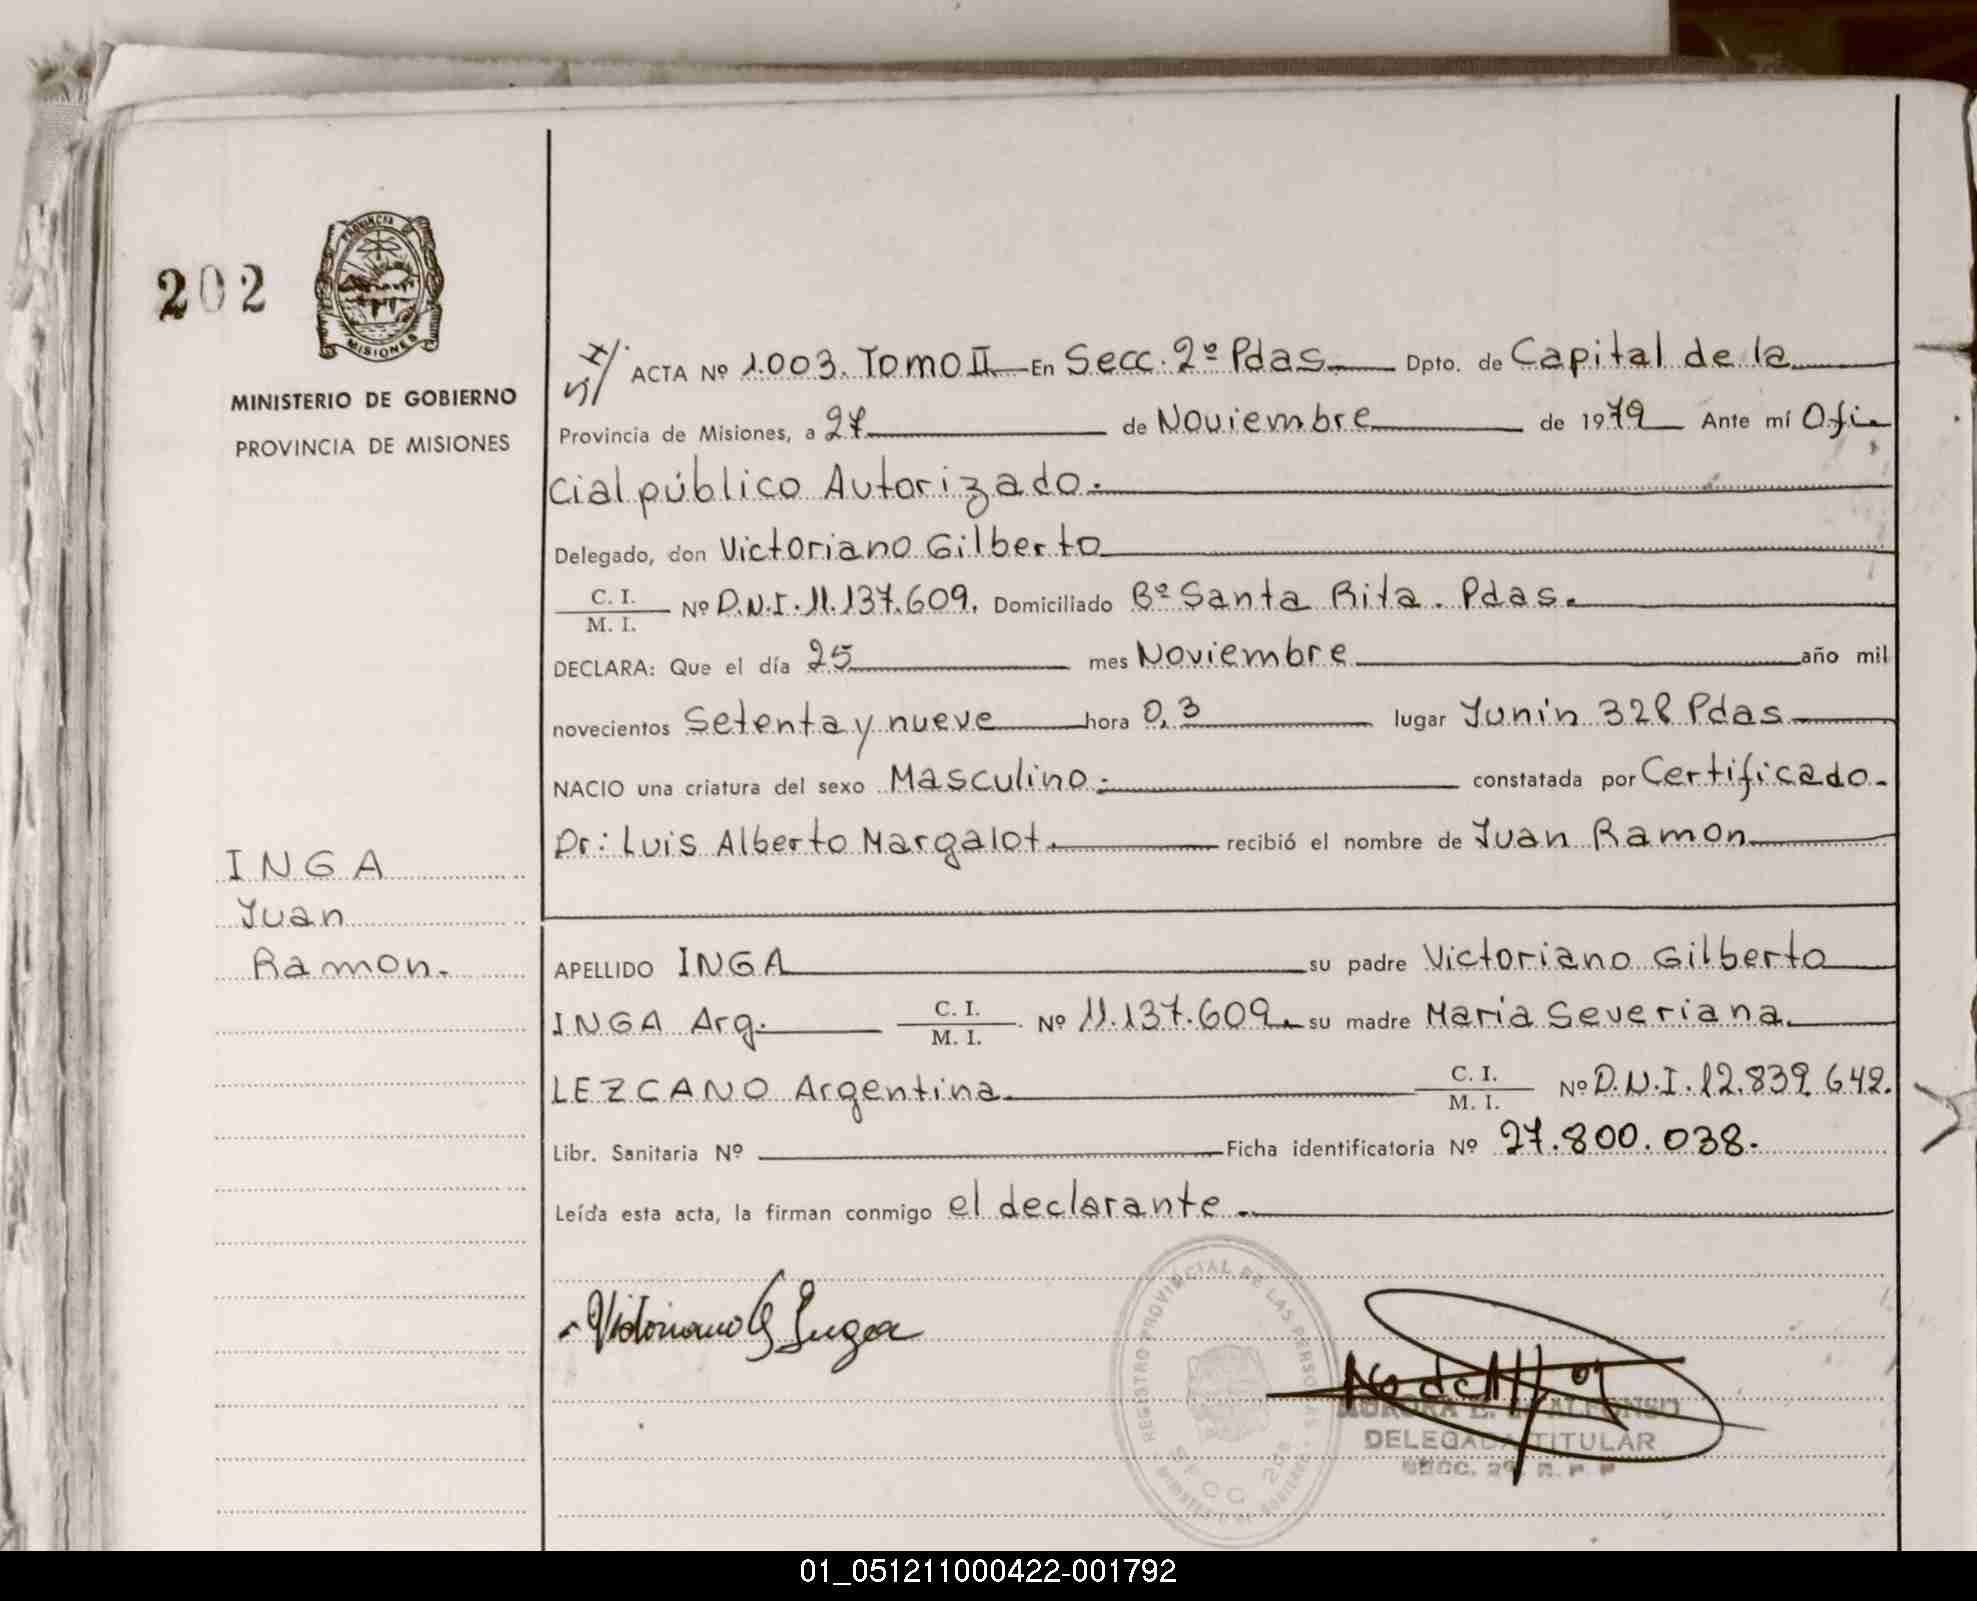 202
PROVINCIA DE
MISIONES
MINISTERIO DE GOBIERNO
PROVINCIA DE MISIONES
ACTA Nº 1.003. Tomo II En Secc. 2º Pdas. Dpto. de Capital de la
Provincia de Misiones, a 27 de Noviembre de 1979 Ante mí Ofi
cial público Autorizado.
Delegado, don Victoriano Gilberto
C. I.
M. I. Nº D.N.I. 11.137.609. Domiciliado Bº Santa Rita. Pdas.
DECLARA: Que el día 25 mes Noviembre año mil
novecientos Setenta y nueve hora 0,3 lugar Junin 328 Pdas
NACIO una criatura del sexo Masculino.- constatada por Certificado.
Dr: Luis Alberto Margalot. recibió el nombre de Juan Ramon
INGA
Juan
Ramon.
APELLIDO INGA su padre Victoriano Gilberto
INGA Arg. C. I. M. I. Nº 11.137.609. su madre Maria Severiana
LEZCANO Argentina. C. I. M. I. Nº D.N.I. 12.839.642.
Libr. Sanitaria Nº Ficha identificatoria Nº 27.800.038.
Leída esta acta, la firman conmigo el declarante.
Victoriano G Inga
REGISTRO PROVINCIAL DE LAS PERSO
SECC 2da
AURORA E. ALFONSO
DELEGADA TITULAR
SECC. 2ª R. P. P
01_051211000422-001792